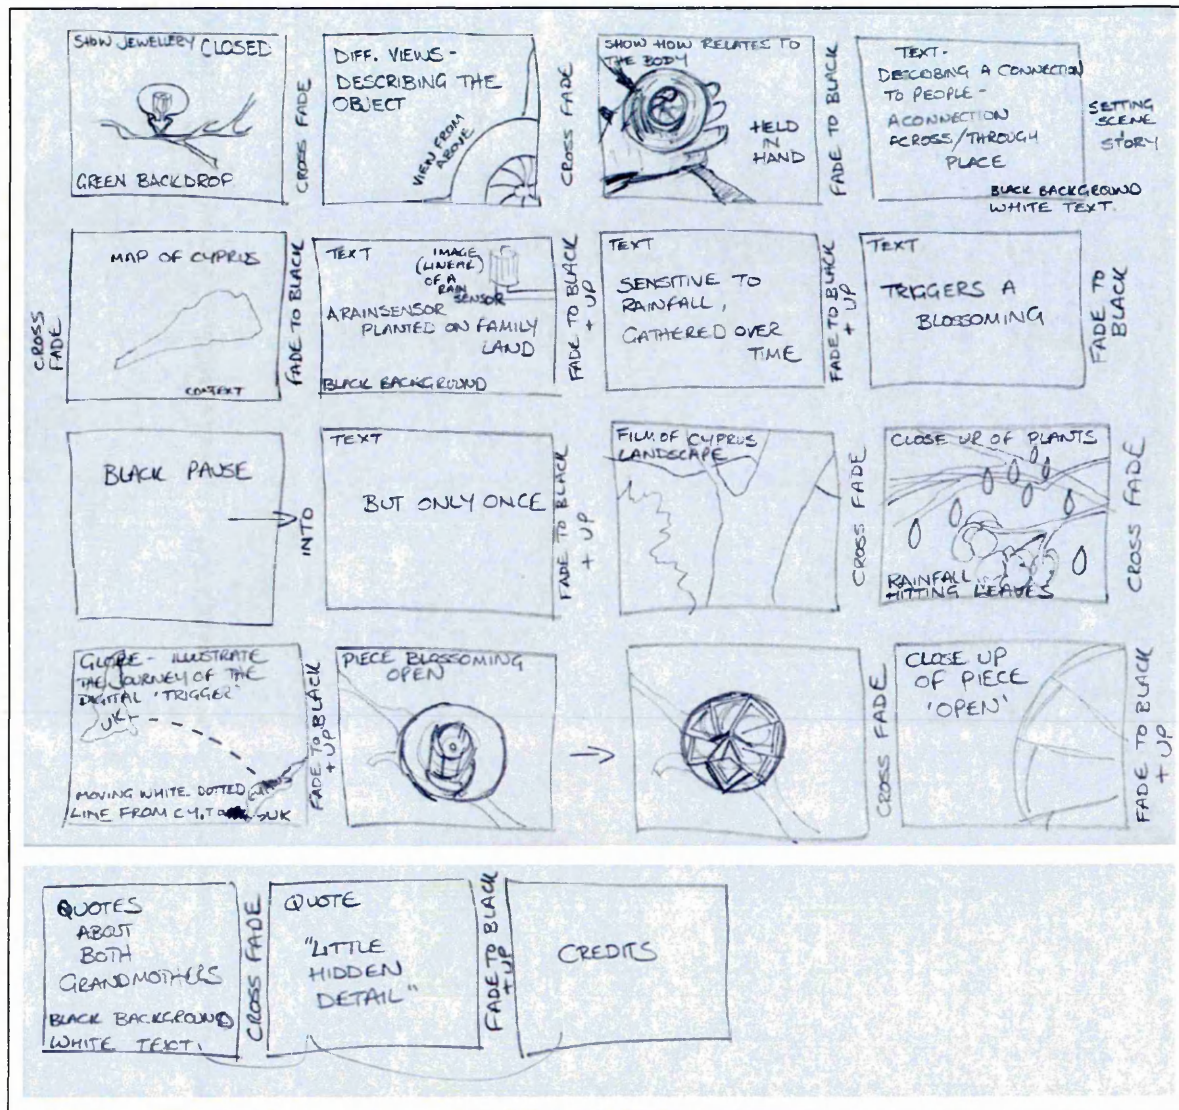 SHOW JEWELLERY CLOSED
GREEN BACKDROP
CROSS FADE
DIFF. VIEWS -
DESCRIBING THE
OBJECT
VIEW FROM
ABOVE
CROSS FADE
SHOW HOW RELATES TO
THE BODY
HELD
IN
HAND
FADE TO BLACK
TEXT -
DESCRIBING A CONNECTION
TO PEOPLE -
A CONNECTION
ACROSS/THROUGH
PLACE
BLACK BACKGROUND
WHITE TEXT.
SETTING
SCENE
+
STORY
CROSS
FADE
MAP OF CYPRUS
CONTEXT
FADE TO BLACK
TEXT
IMAGE
(LINEAR)
OF A
RAIN
SENSOR
A RAINSENSOR
PLANTED ON FAMILY
LAND
BLACK BACKGROUND
FADE TO BLACK
+ UP
TEXT
SENSITIVE TO
RAINFALL,
GATHERED OVER
TIME
FADE TO BLACK
+ UP
TEXT
TRIGGERS A
BLOSSOMING
FADE TO
BLACK
BLACK PAUSE
INTO
TEXT
BUT ONLY ONCE
FADE TO BLACK
+ UP
FILM OF CYPRUS
LANDSCAPE
CROSS FADE
CLOSE UP OF PLANTS
RAINFALL
HITTING LEAVES
CROSS FADE
GLOBE - ILLUSTRATE
THE JOURNEY OF THE
DIGITAL 'TRIGGER'
UK
MOVING WHITE DOTTED
LINE FROM CY. TO UK
FADE TO BLACK
+ UP
PIECE BLOSSOMING
OPEN
CROSS FADE
CLOSE UP
OF PIECE
'OPEN'
FADE TO BLACK
+ UP
QUOTES
ABOUT
BOTH
GRANDMOTHERS
BLACK BACKGROUND
WHITE TEXT.
CROSS FADE
QUOTE
"LITTLE
HIDDEN
DETAIL"
FADE TO BLACK
+ UP
CREDITS